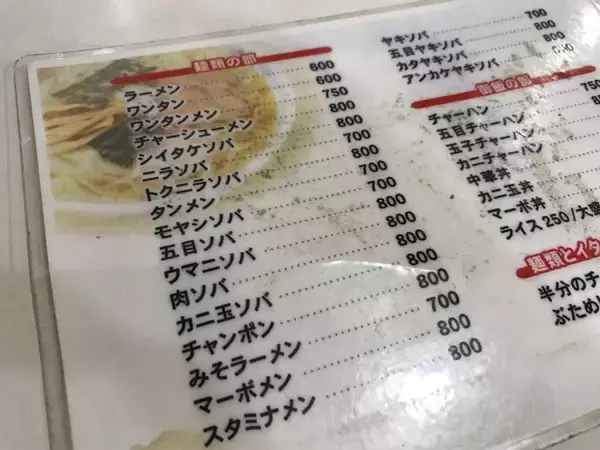 麺類の部
ラーメン 600
ワンタン 600
ワンタンメン 750
チャーシューメン 800
シイタケソバ 800
ニラソバ 700
トクニラソバ 800
タンメン 700
モヤシソバ 700
五目ソバ 800
ウマニソバ 800
肉ソバ 800
カニ玉ソバ 800
チャンポン 800
みそラーメン 700
マーボメン 800
スタミナメン 800
ヤキソバ 700
五目ヤキソバ 800
カタヤキソバ 800
アンカケヤキソバ
御飯の部
チャーハン 750
五目チャーハン
玉子チャーハン
カニチャーハン
中華丼
カニ玉丼
マーボ丼
ライス 250/大盛
麺類とイタ
半分のチ
ぶためし